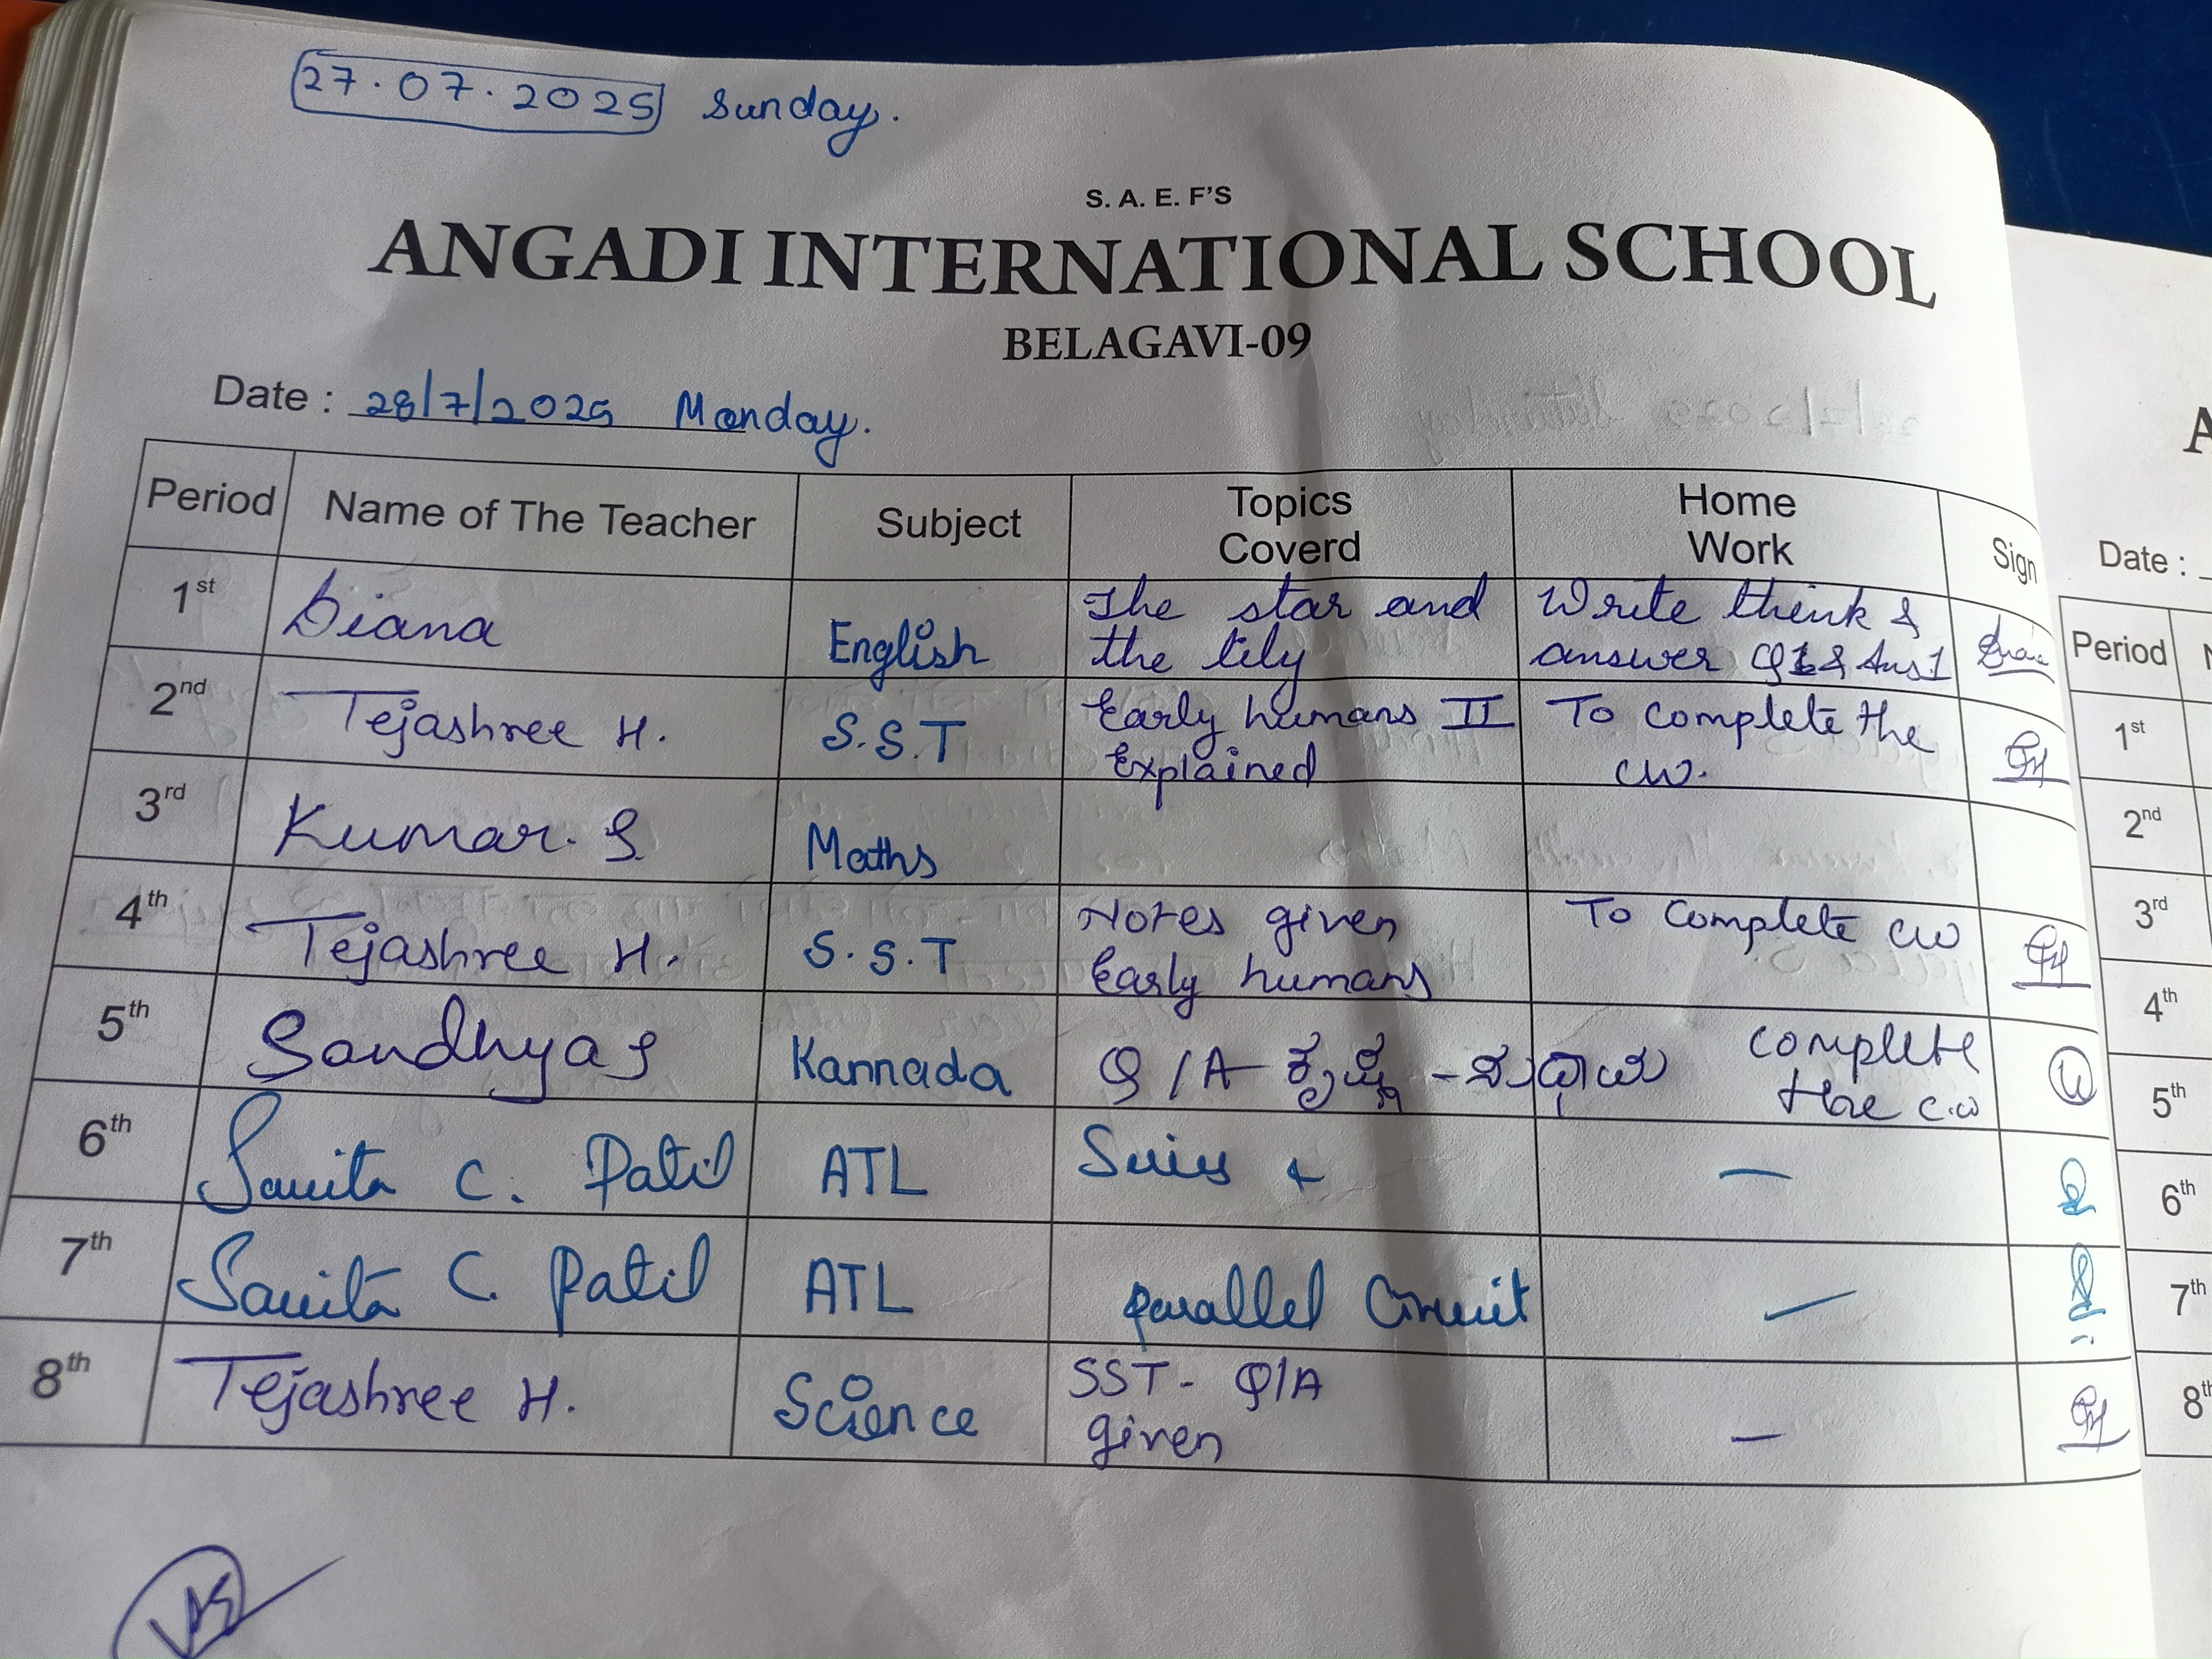 27.07.2025 Sunday.
S. A. E. F'S
ANGADI INTERNATIONAL SCHOOL
BELAGAVI-09
Date : 28/7/2025 Monday.
Period Name of The Teacher Subject Topics Coverd Home Work Sign
1st Diana English The star and the lily Write think & answer Q1 & Ans 1
2nd Tejashree H. S.S.T Early humans II Explained To complete the cw.
3rd Kumar. S. Maths
4th Tejashree H. S.S.T Notes given Early humans To complete cw
5th Sandhya S Kannada Q/A complete the c.w
6th Savita C. Patil ATL Series & —
7th Savita C. Patil ATL parallel Circuit —
8th Tejashree H. Science SST- Q/A given —
A
Date :
Period
1st
2nd
3rd
4th
5th
6th
7th
8th